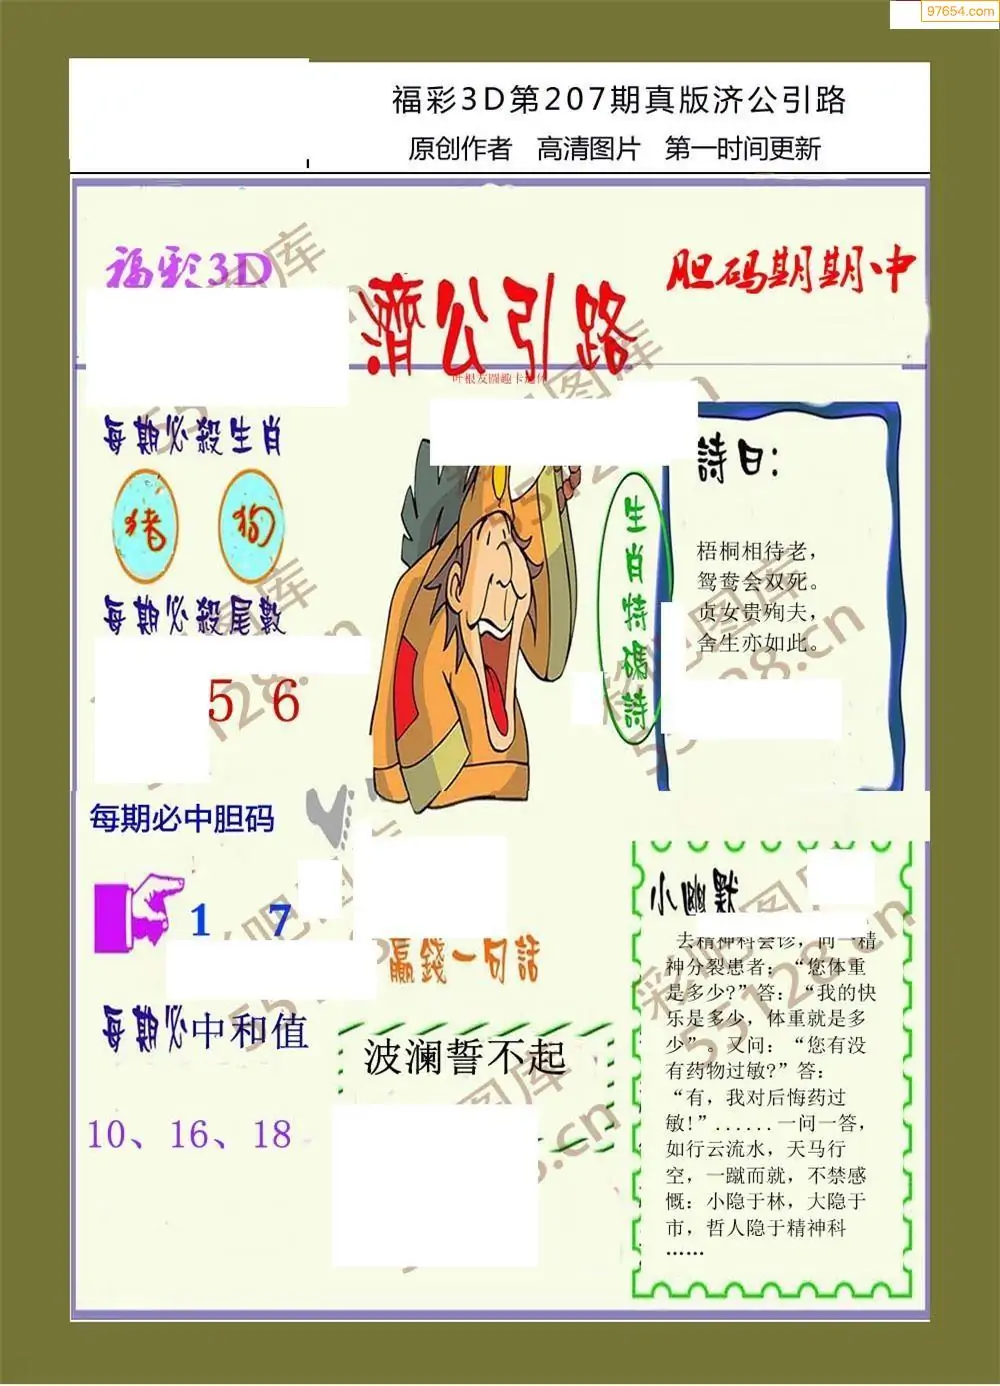 97654.com
福彩3D第207期真版济公引路
原创作者 高清图片 第一时间更新
福彩3D
濟公引路
胆码期期中
叶根友圆趣卡通体
每期必殺生肖
猪 狗
每期必殺尾數
5 6
每期必中胆码
1 7
每期必中和值
10、16、18
生肖特碼詩
詩曰：
梧桐相待老，
鸳鸯会双死。
贞女贵殉夫，
舍生亦如此。
贏錢一句話
波澜誓不起
小幽默
去精神科会诊，问一精
神分裂患者：“您体重
是多少?”答：“我的快
乐是多少，体重就是多
少”。又问：“您有没
有药物过敏?”答：
“有，我对后悔药过
敏!”......一问一答，
如行云流水，天马行
空，一蹴而就，不禁感
慨：小隐于林，大隐于
市，哲人隐于精神科
……
彩吧图库
55128.cn